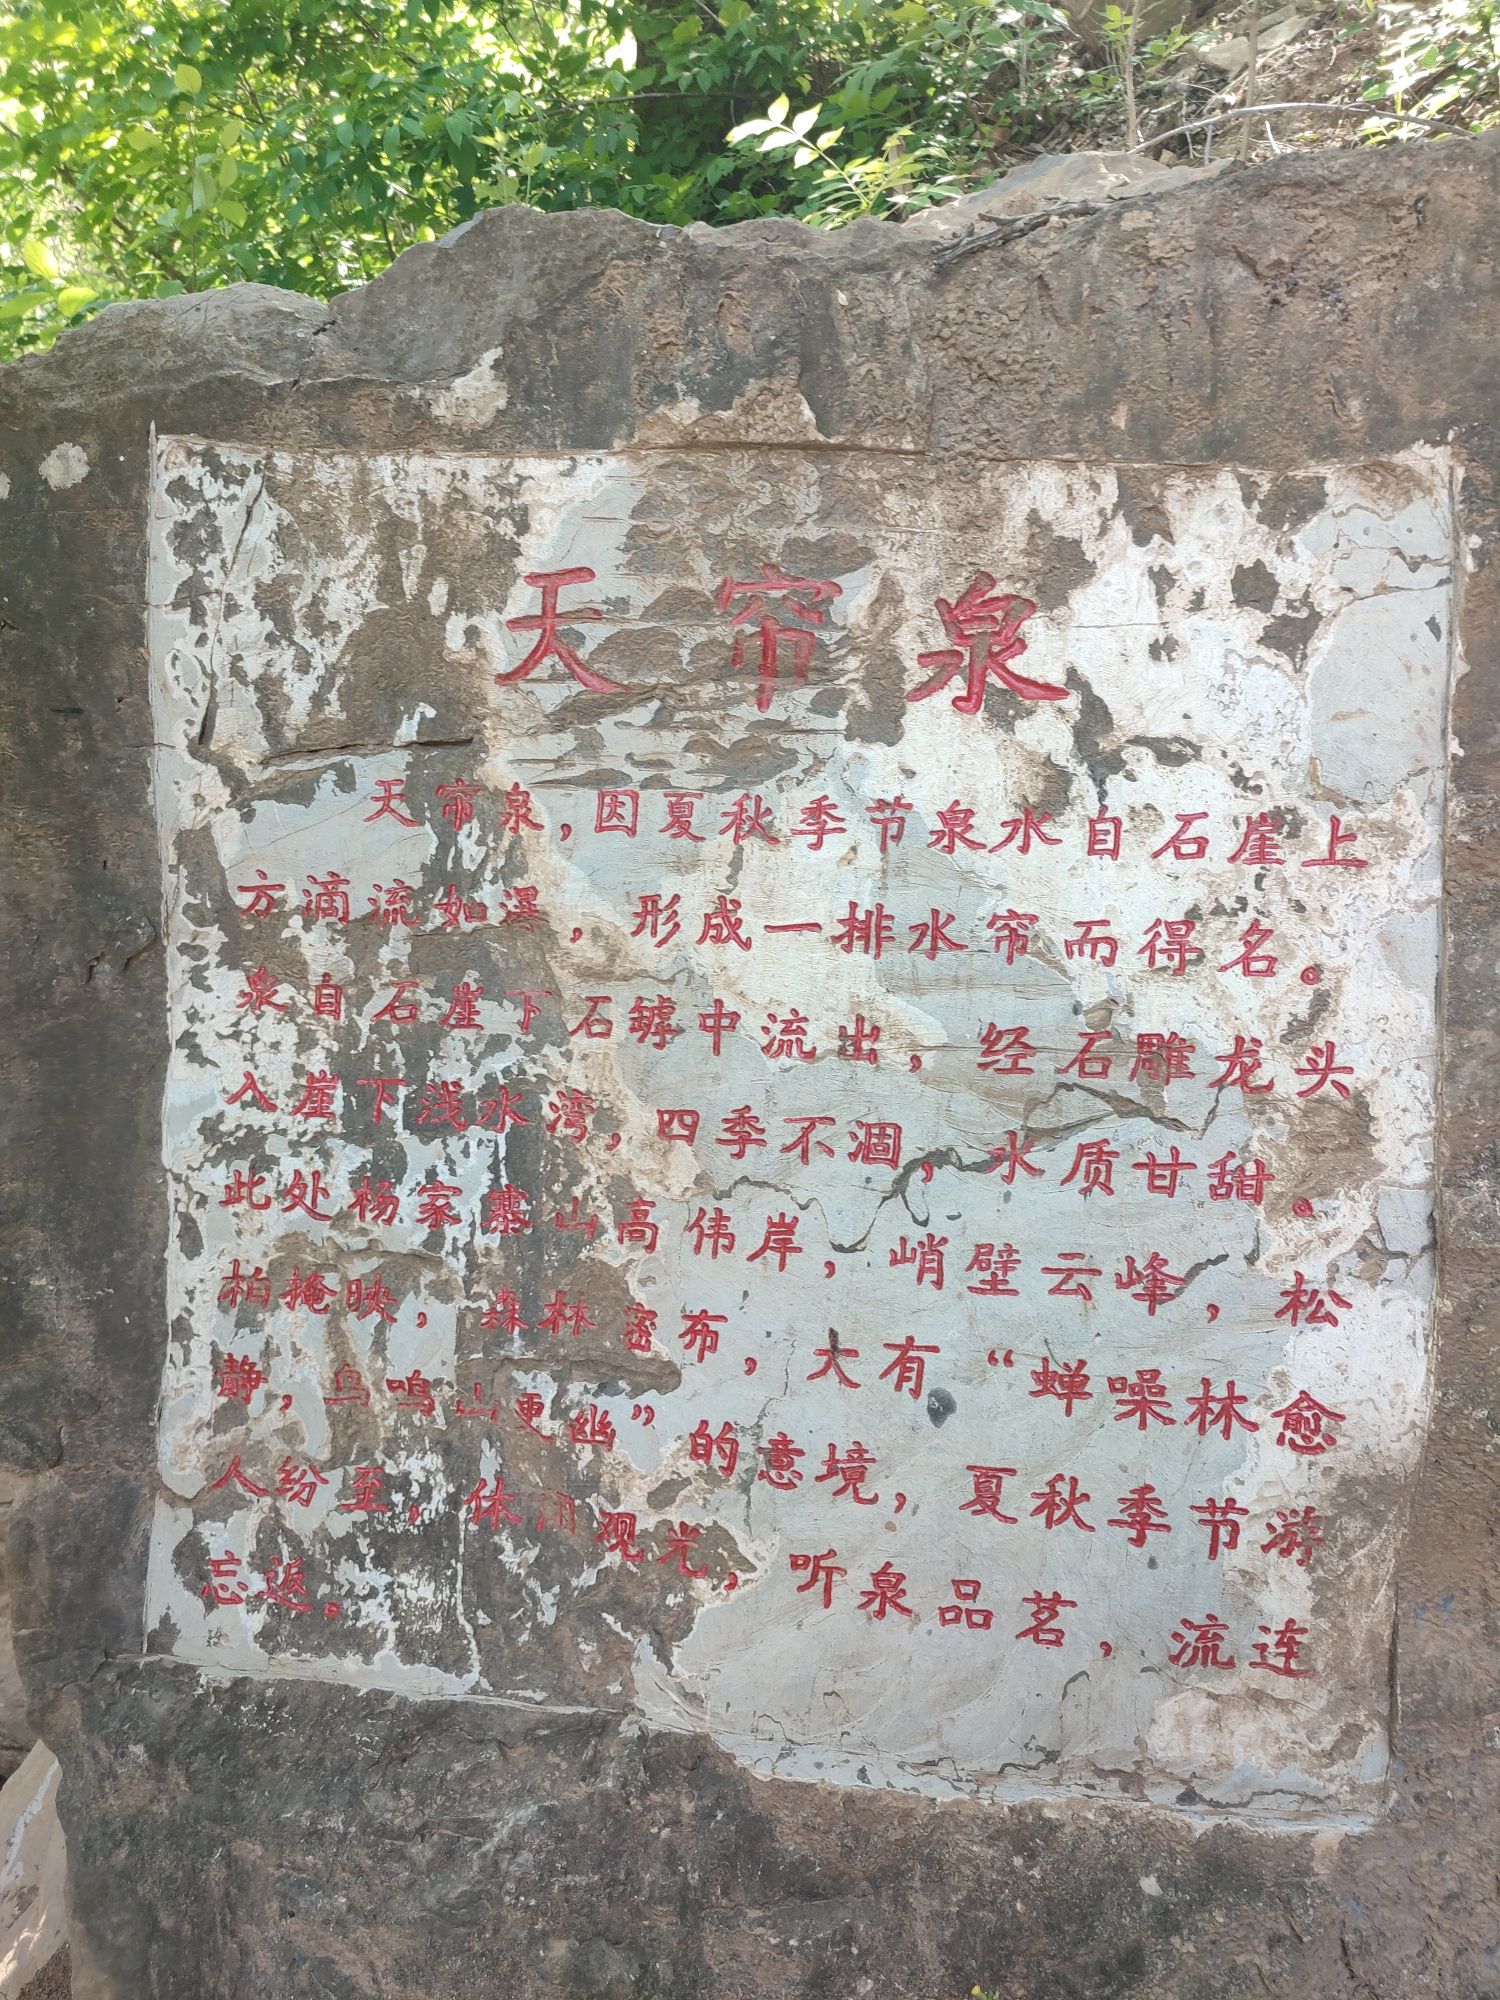 天帘泉
天帘泉，因夏秋季节泉水自石崖上
方滴流如瀑，形成一排水帘而得名。
泉自石崖下石罅中流出，经石雕龙头
入崖下浅水湾，四季不涸，水质甘甜。
此处杨家寨山高伟岸，峭壁云峰，松
柏掩映，森林密布，大有“蝉噪林愈
静，鸟鸣山更幽”的意境，夏秋季节游
人纷至，休闲观光，听泉品茗，流连
忘返。